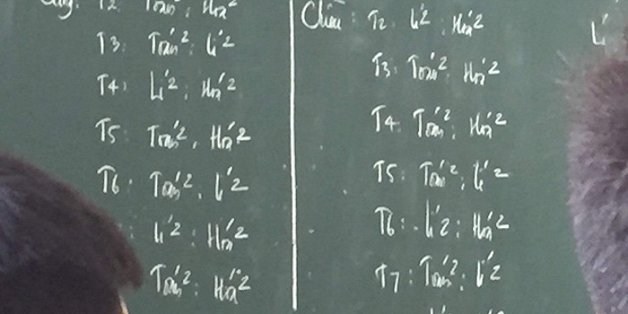 Sáng: T2 Toán2, Hoá2
T3: Toán2: Lí2
T4: Lí2: Hoá2
T5: Toán2, Hoá2
T6: Toán2, Lí2
: Lí2: Hoá2
Toán2: Hoá2
Chiều: T2: Lí2: Hoá2
T3: Toán2: Hoá2
T4: Toán2: Hoá2
T5: Toán2: Lí2
T6: Lí2: Hoá2
T7: Toán2: Lí2
Lí